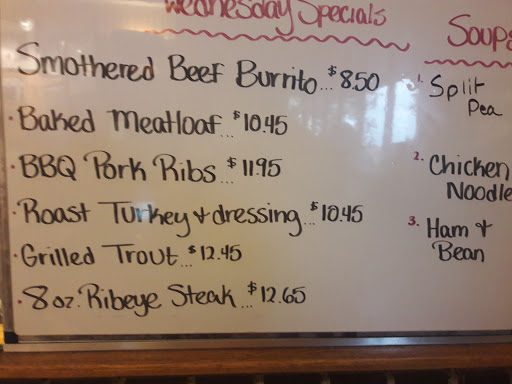 Wednesday Specials
Smothered Beef Burrito...$8.50
· Baked Meatloaf...$10.45
· BBQ Pork Ribs...$11.95
· Roast Turkey + dressing...$10.45
· Grilled Trout...$12.45
· 8 oz. Ribeye Steak...$12.65
Soups
1. Split
Pea
2. Chicken
Noodle
3. Ham +
Bean